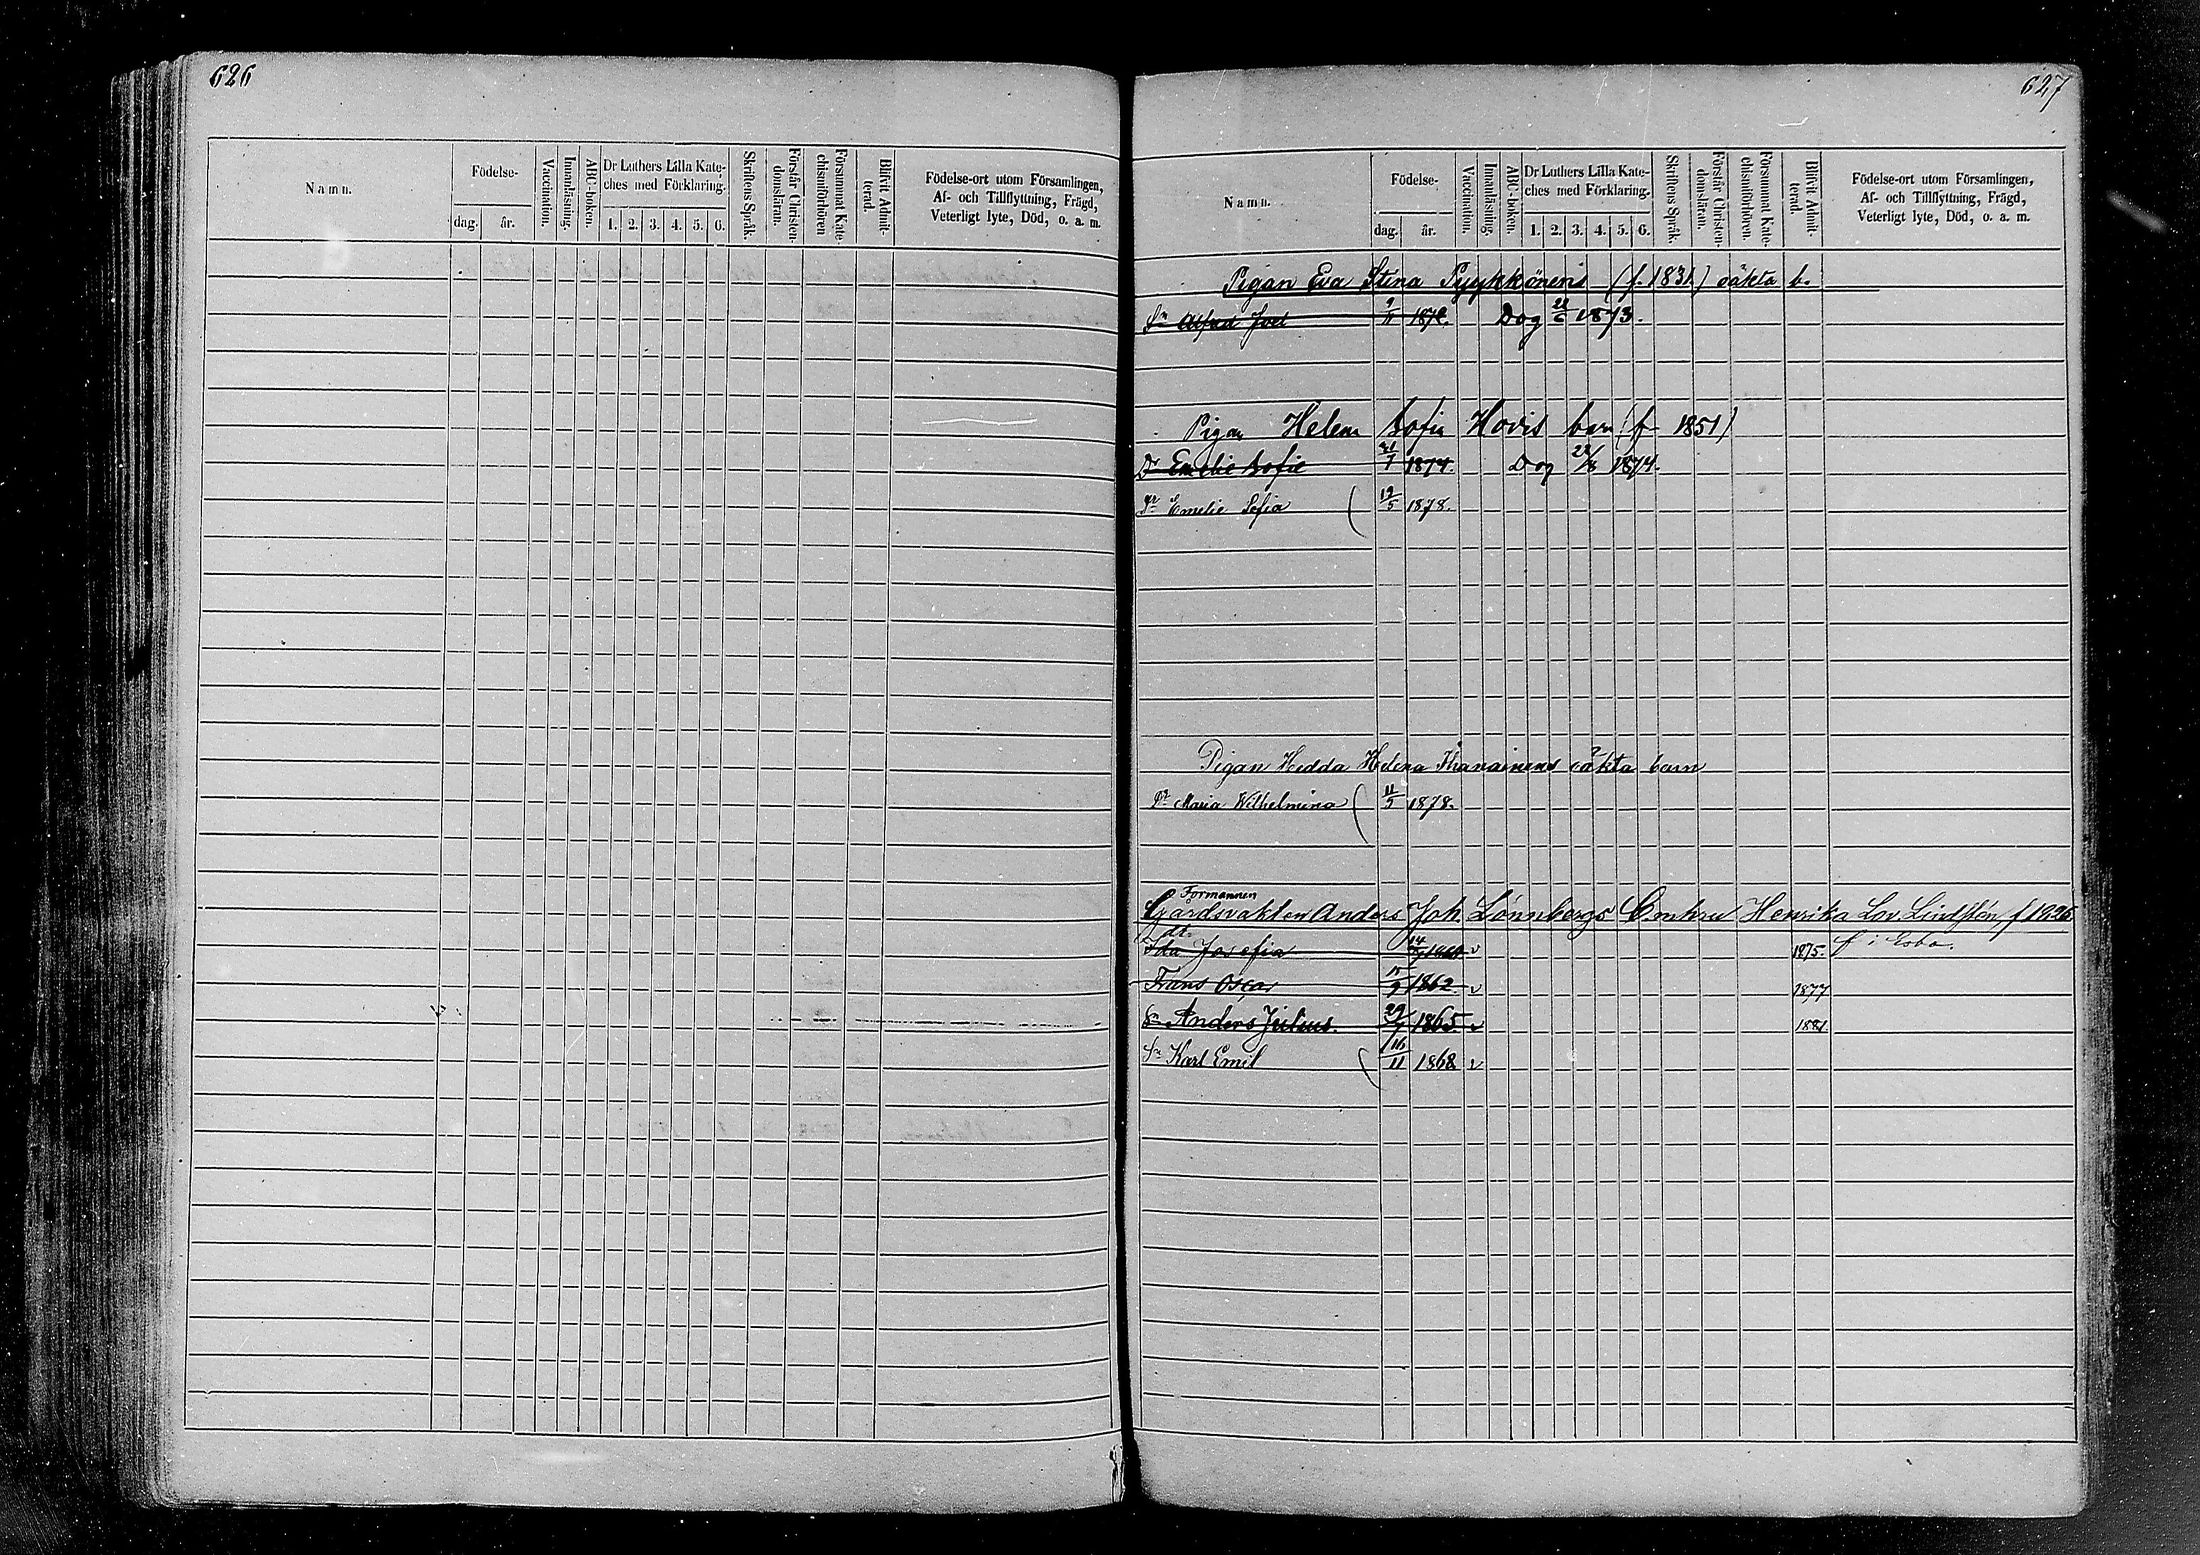 626
Namn.
Födelse-
dag.
år.
Vaccination.
Innanläsning.
ABC-boken.
Dr Luthers Lilla Kate-
ches med Förklaring.
1. 2. 3. 4. 5. 6.
Skriftens Språk.
Förstår Christen-
domsläran.
Försummat Kate-
chismiförhören
Blifvit Admit-
terad.
Födelse-ort utom Församlingen,
Af- och Tillflyttning, Frägd,
Veterligt lyte, Död, o. a. m.
627
Namn.
Födelse-
dag.
år.
Vaccination.
Innanläsning.
ABC-boken.
Dr Luthers Lilla Kate-
ches med Förklaring.
1. 2. 3. 4. 5. 6.
Skriftens Språk.
Förstår Christen-
domsläran.
Försummat Kate-
chismiförhören.
Blifvit Admit-
terad.
Födelse-ort utom Församlingen,
Af- och Tillflyttning, Frägd,
Veterligt lyte, Död, o. a. m.
Pigan Eva Stina Pyykkönens (f. 1831) oäkta b.
Sn Alfred Joel 9/11 1872. Dog 28/6 1873.
Pigan Helena Sofia Hovis barn (f 1851)
Dr Emelie Sofie 21/7 1874 Dog 22/8 1874.
Dr Emelie Sofia 19/5 1878.
Pigan Hedda Helena Ihanainens oäkta barn
Dr Maria Wilhelmina 11/5 1878.
Formannen
Gårdsvakten Anders Joh. Lönnbergs Enkru Henrika Lov. Lindsten, f 1826
dt. Ida Josefia 14 v 1875. f i Esbo.
Frans Oscar 15/9 1862 v 1877
Sn Anders Julius. 29 1865 v 1881.
Sn Karl Emil 16/11 1868 v